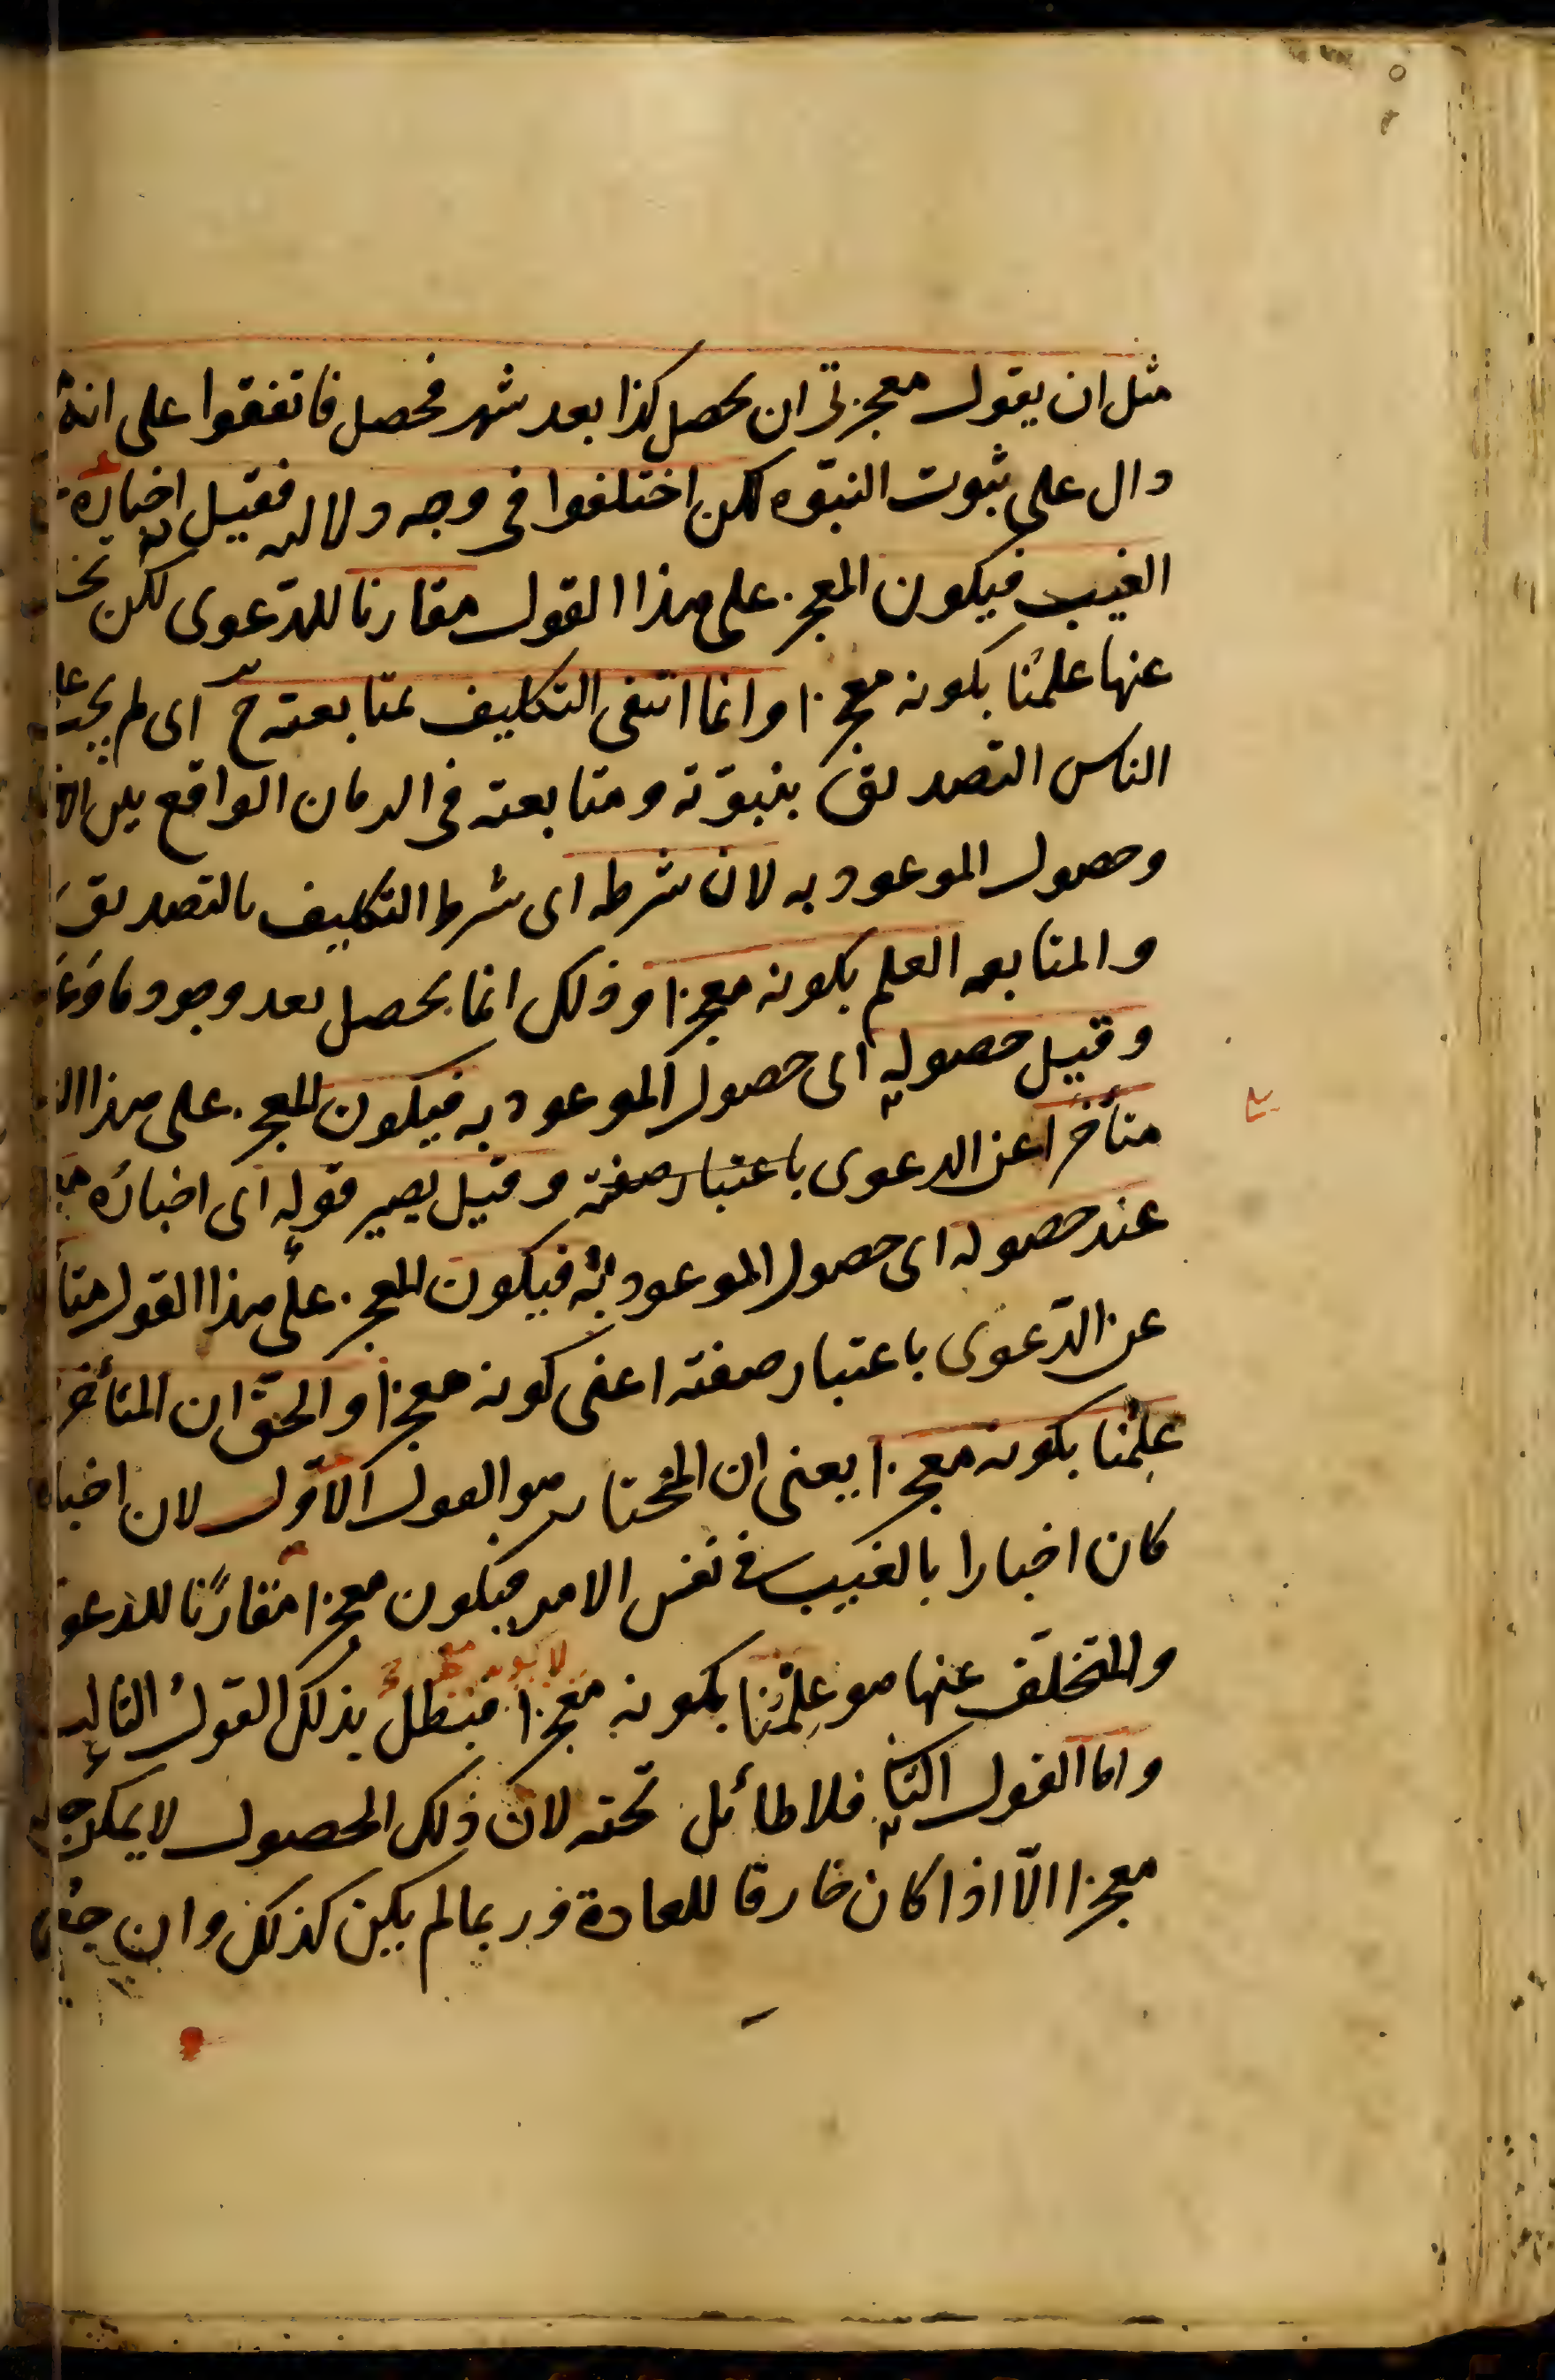 مثل ان يقول معجزتى ان يحصل كذا بعد شهر فحصل فاتفقوا على انه
دال على ثبوت النبوه لكن اختلفوا فى وجه دلالته فقيل اخباره
الغيب فيكون المعجز على هذا القول مقارنا للدعوى لكن تخلف
عنها علمنا بكونه معجزا وانما انتفى التكليف بمتابعته ح اى لم يجب على
الناس التصديق بنبوته ومتابعته فى الزمان الواقع بين
وحصول الموعود به لان شرطه اى شرط التكليف بالتصديق
والمتابعه العلم بكونه معجزا وذلك انما يحصل بعد وجود ما وعد
وقيل حصوله اى حصول الموعود به فيكون المعجز على هذا
متأخرا عن الدعوى باعتبار صفته وقيل يصير قوله اى اخباره
عند حصوله اى حصول الموعود به فيكون المعجز على هذا القول متأ
عن الدعوى باعتبار صفته اعنى كونه معجزا والحق ان المتأخر
علمنا بكونه معجزا يعنى ان المختار هو القول الاول لان اخباره
كان اخبارا بالغيب فى نفس الامر فيكون معجزا مقارنا للدعو
والمتخلف عنها هو علمنا بكونه معجزا فبطل بذلك القول الثالث
واما القول الثانى فلا طائل تحته لان ذلك الحصول لا يمكن
معجزا الا اذا كان خارقا للعادة فربما لم يكن كذلك وان